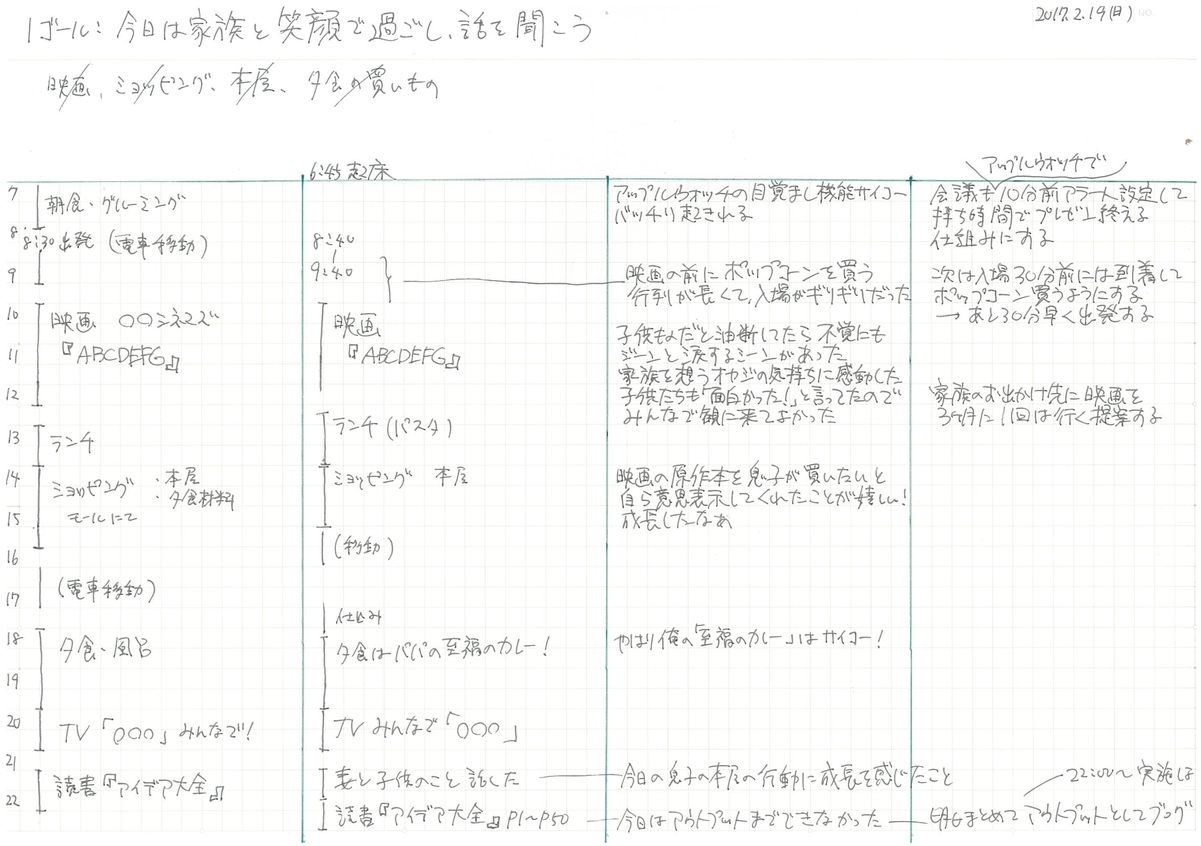 2017.2.19(日) NO.
1ゴール: 今日は家族と笑顔で過ごし、話を聞こう
映画、ショッピング、本屋、夕食の買いもの
7
朝食・グルーミング
8
8:30出発 (電車移動)
9
10
映画 〇〇シネマズ
『ABCDEFG』
11
12
13
ランチ
14
ショッピング ・本屋
・夕食材料
モールにて
15
16
(電車移動)
17
18
夕食・風呂
19
20
TV「〇〇〇」みんなで!
21
読書『アイデア大全』
22
6:45起床
8:40
9:40
映画
『ABCDEFG』
ランチ(パスタ)
ショッピング 本屋
(移動)
仕込み
夕食はパパの至福のカレー!
TV みんなで「〇〇〇」
妻と子供のこと話した
読書『アイデア大全』P1~P50
アップルウォッチの目覚まし機能サイコー
バッチリ起きれる
映画の前にポップコーンを買う
行列が長くて、入場がギリギリだった
子供もんだと油断してたら不覚にも
ジーンと涙するシーンがあった
家族を想うオヤジの気持ちに感動した
子供たちも「面白かった!」と言ってたので
みんなで観に来てよかった
映画の原作本を息子が買いたいと
自ら意思表示してくれたことが嬉しい!
成長したなぁ
やはり俺の「至福のカレー」はサイコー!
今日の息子の本屋の行動に成長を感じたこと
今日はアウトプットまでできなかった
アップルウォッチで
会議も10分前アラート設定して
持ち時間でプレゼン終える
仕組みにする
次は入場30分前には到着して
ポップコーン買うようにする
→あと30分早く出発する
家族のお出かけ先に映画を
3ヶ月に1回は行く提案する
22:00~実施は
明日まとめてアウトプットとしてブログ